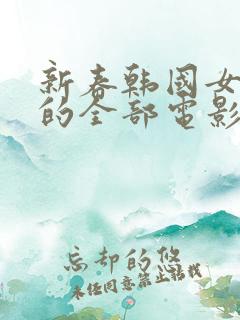 新春韩國女
的全部電影
忘却的悠
未经同意禁止转载